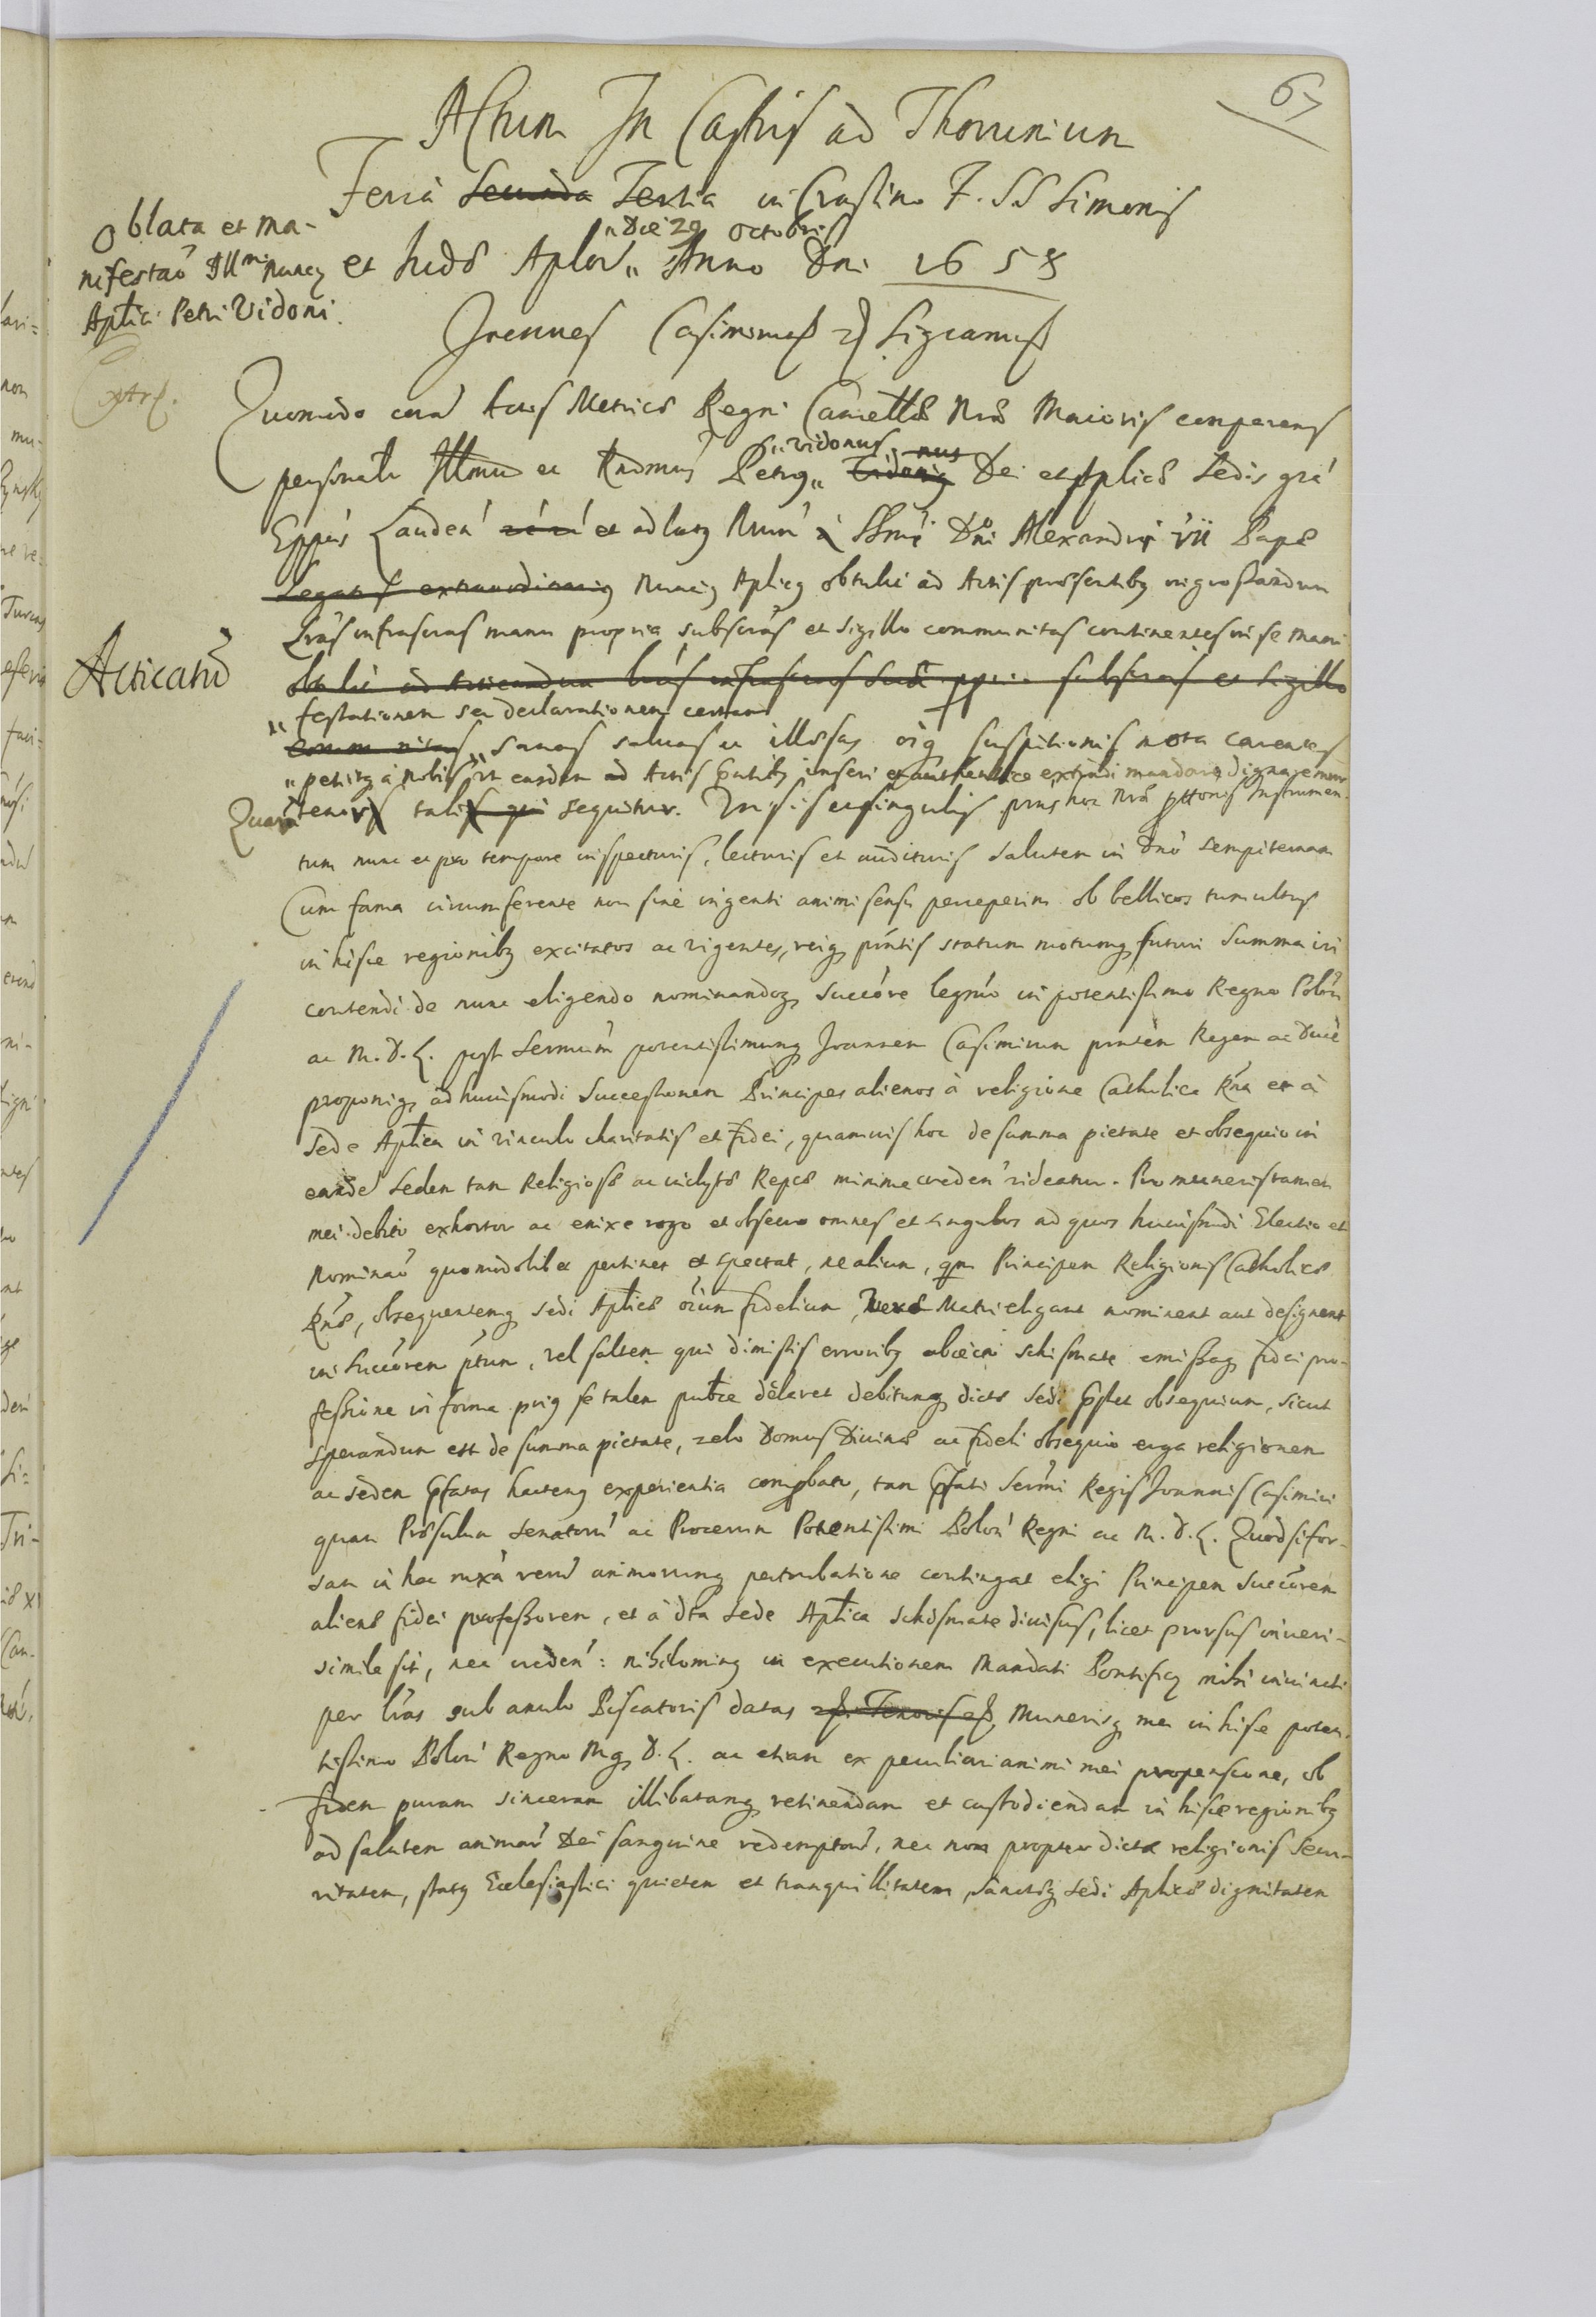 67
Actum In Castris ad Thorunium
Feria Secunda Tertia in Crastino F. SS Simonis
Oblata et ma-
nifestaõ Illmi Nuncij
Aplici Petri Vidoni.
die 29 Octobris
et Iudæ Aplor̃ Anno Dni 1658
Joannes Casimirus Significamus
Extrad.
Quomodo coram Actis Metrices Regni Cancellæ Nræ Maioris comparens
personalr Illmus ac Rndmus Petrus Vidonus Dei et Aplicæ Sedis grã
Eppus Lauden et ad Nrm Ssmi Dni Alexandri vii Papæ
Legatus extraordinarius Nuncius Aplicus obtulit ad Actis præsentibus ingrossandum
Lrãs infrascrãs manu propria subscrãs et sigillo communitas continentes in se mani
Acticatũ
obtulit ad Acticandum lrãs infrascras sua ppria subscras et Sigillo
festationem seu declarationem certam
communitas sanas saluas et illæsas oiq suspitionis nota carentes
petitq à nobis ut easdem ad Actis pntibq inseri et authentice extradi mandare dignaremur
Quarũ tenor talis qui sequitur. Vnisis et singulis pnus hoc Nræ pttonis Instrumen-
tum nunc et pro tempore inspecturis, lecturis et audituris salutem in Dnõ sempiternam
Cum fama circumferente non sine ingenti animi sensu perceperim ob bellicos tumultus
in hisce regionibq excitatos ac vigentes, reiq pñtis statum motumq futuri summa iri
contendi de nunc eligendo nominandoq Succõre legmo in potentissimo Regno Polon
ac M. D. L. post Sermum potentissimumq Joannem Casimirum pntem Regem ac Ducẽ
proponiq ad huiusmodi Successionem Principes alienos à religione Catholica Rna et à
Sede Aplica in vinculo charitatis et fidei, quamuis hoc de summa pietate et obsequio in
eandẽ Sedem tam Religiosæ ac inclytæ Reipcæ minime creden videatur. Pro muneris tamen
mei debito exhortor ac enixe rogo et obsecro omnes et singulos ad quos huiusmdi Electio et
Nominaõ quomodolibet pertinet et spectat, ne alium, qm Principem Religionis Catholicæ
Rnæ, obsequentemq Sedi Aplicæ oium fidelium veræ Matri eligant nominent aut designent
in Succõrem ptum, vel saltem qui dimissis erroribq abiecto schismate emissaq fidei pro-
fessione in forma priq se talem publce declaret debitumq dictæ Sedi pstet obsequium, sicut
sperandum est de summa pietate, zelo Domus Diuinæ ac fideli obsequio erga religionem
ac Sedem pfatas hactenq experientia comprobato, tam pfati Sermi Regis Joannis Casimiri
quam Præsulum Senatorũ ac Procerum Potentissimi Polon Regni ac M. D. L. Quod si for-
san in hac rerũ animorumq perturbatione contingat eligi Principem Succõrem
alienæ fidei professorem, et à dta Sede Aplica schismate diuisus, licet prorsus inueri-
simile sit, nec creden: nihilominq in executionem Mandati Pontificij mihi iniuncti
per lrãs sub anulo Piscatoris datas Munerisq mei in hisce poten-
tissimo Polon Regno Mq D. L. ac etiam ex peculiari animi mei propensione, ob
fidem puram sinceram illibatamq retinendam et custodiendam in hisce regionibq
ad salutem animarũ Dei sanguine redemptarũ, nec non propter dictæ religionis secu-
ritatem, statq Ecclesiastici quietem et tranquillitatem, Sanctæq Sedi Aplicæ dignitatem